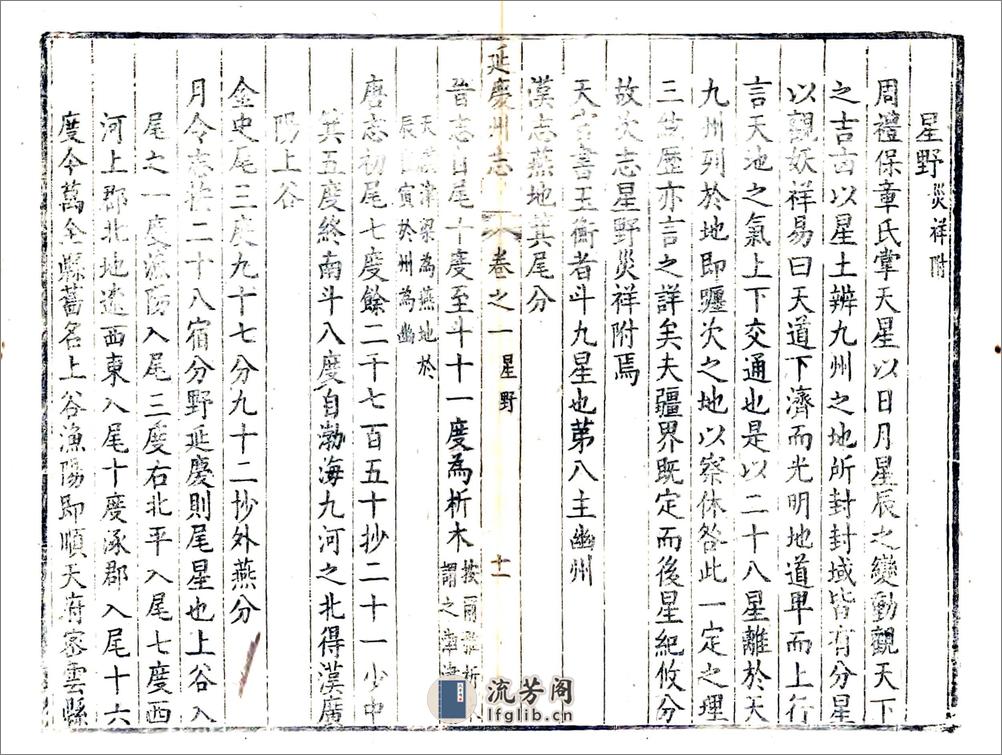 星野 災祥附
周禮保章氏掌天星以日月星辰之變動觀天下
之吉凶以星土辨九州之地所封封域皆有分星
以觀妖祥易曰天道下濟而光明地道卑而上行
言天地之氣上下交通也是以二十八星離於天
九州列於地即躔次之地以察休咎此一定之理
三歴亦言之詳矣夫疆界既定而後星紀攸分
故次志星野災祥附焉
天官書玉衡者斗九星也第八主幽州
漢志燕地箕尾分
延慶州志 卷之一 星野 十一
晋志自尾十度至斗十一度為析木 按爾雅析木謂之津
天漢津梁為燕地於
辰寅於州為幽
唐志初尾七度餘二千七百五十抄二十一少中
箕五度終南斗八度自渤海九河之北得漢廣
陽上谷
金史尾三度九十七分九十二抄外燕分
月令志於二十八宿分野延慶則尾星也上谷入
尾之一度漁陽入尾三度右北平入尾七度西
河上郡北地遼西東入尾十度涿郡入尾十六
度今萬全縣舊名上谷漁陽即順天府密雲縣
流芳阁
lfglib.cn